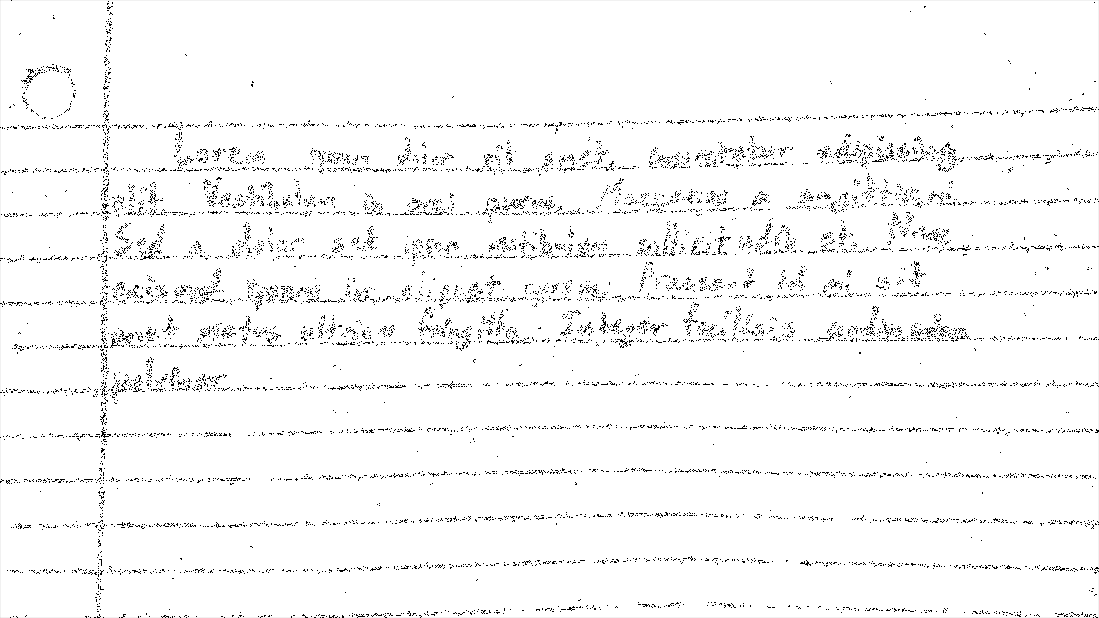 Lorem ipsum dolor sit amet, consectetur adipiscing
elit. Vestibulum in orci purus. Maecenas a
Sed a dolor sed ipsum vestibulum sollicitudin et. Nunc
euismod ipsum in aliquet Praesent id mi sit
amet metus ultrices fringilla. Integer facilisis
pulvinar